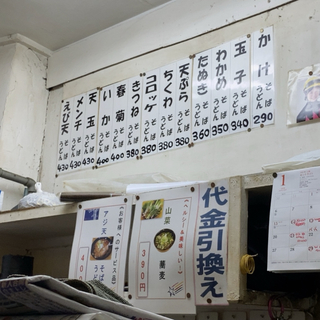 かけ そば うどん 290
玉子 そば うどん 340
わかめ そば うどん 350
たぬき そば うどん 360
天ぷら そば うどん 380
ちくわ そば うどん 380
コロッケ そば うどん 380
きつね そば うどん 380
春菊 そば うどん 400
いか そば うどん 400
天玉 そば うどん 430
メンチ そば うどん 430
えび天 そば うどん 430
代金引換え
山菜 蕎麦
390円
(お客様へのサービス品)
アジ天 そば うどん
1